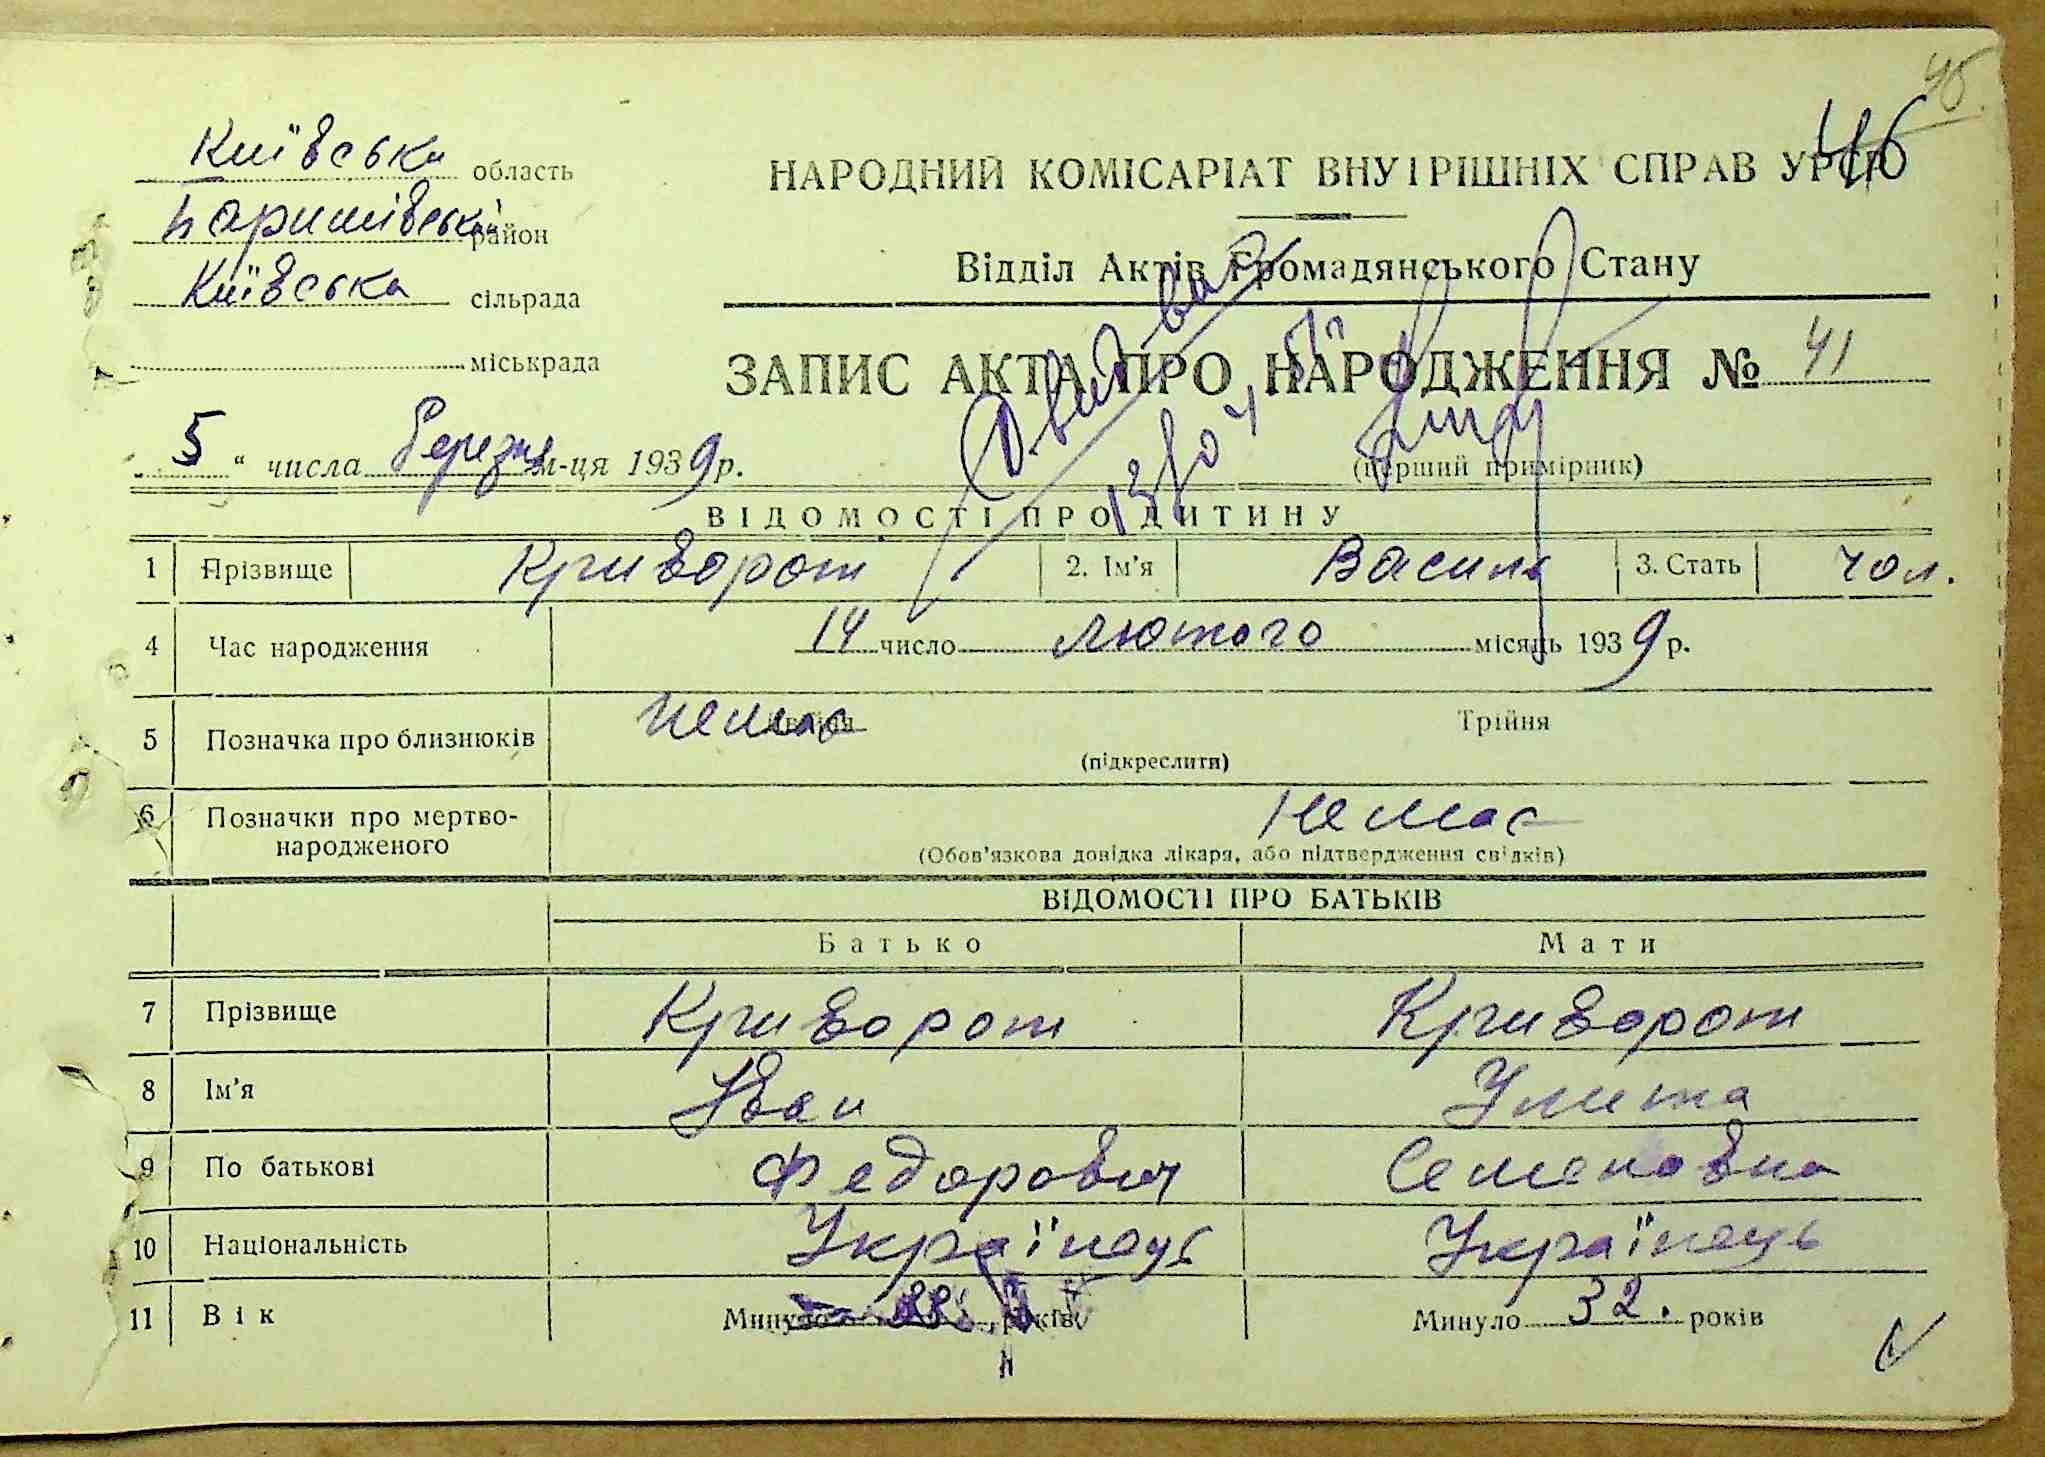 46
46
Київська область
Баришівський район
Київська сільрада
міськрада
НАРОДНИЙ КОМІСАРІАТ ВНУТРІШНІХ СПРАВ УРСР
Відділ Актів Громадянського Стану
ЗАПИС АКТА ПРО НАРОДЖЕННЯ № 41
5 " числа березня м-ця 1939 р.
(перший примірник)
ВІДОМОСТІ ПРО ДИТИНУ
1 Прізвище Криворот 2. Ім'я Василь 3. Стать чол.
4 Час народження 14 число лютого місяць 1939 р.
5 Позначка про близнюків немає Двійня Трійня
(підкреслити)
6 Позначки про мертво-
народженого немає
(Обов'язкова довідка лікаря, або підтвердження свідків)
ВІДОМОСТІ ПРО БАТЬКІВ
Батько Мати
7 Прізвище Криворот Криворот
8 Ім'я Іван Улита
9 По батькові Федорович Семеновна
10 Національність Українець Українець
11 Вік Минуло років Минуло 32. років